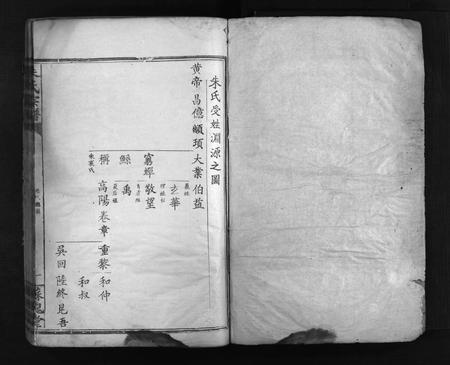 朱氏受姓淵源之圖
黃帝
昌億
顓頊
大業
伯益
玄華
窮蟬
敬望
鯀
禹
稱
高陽
卷章
重黎
和仲
和叔
吳回
陸終
昆吾